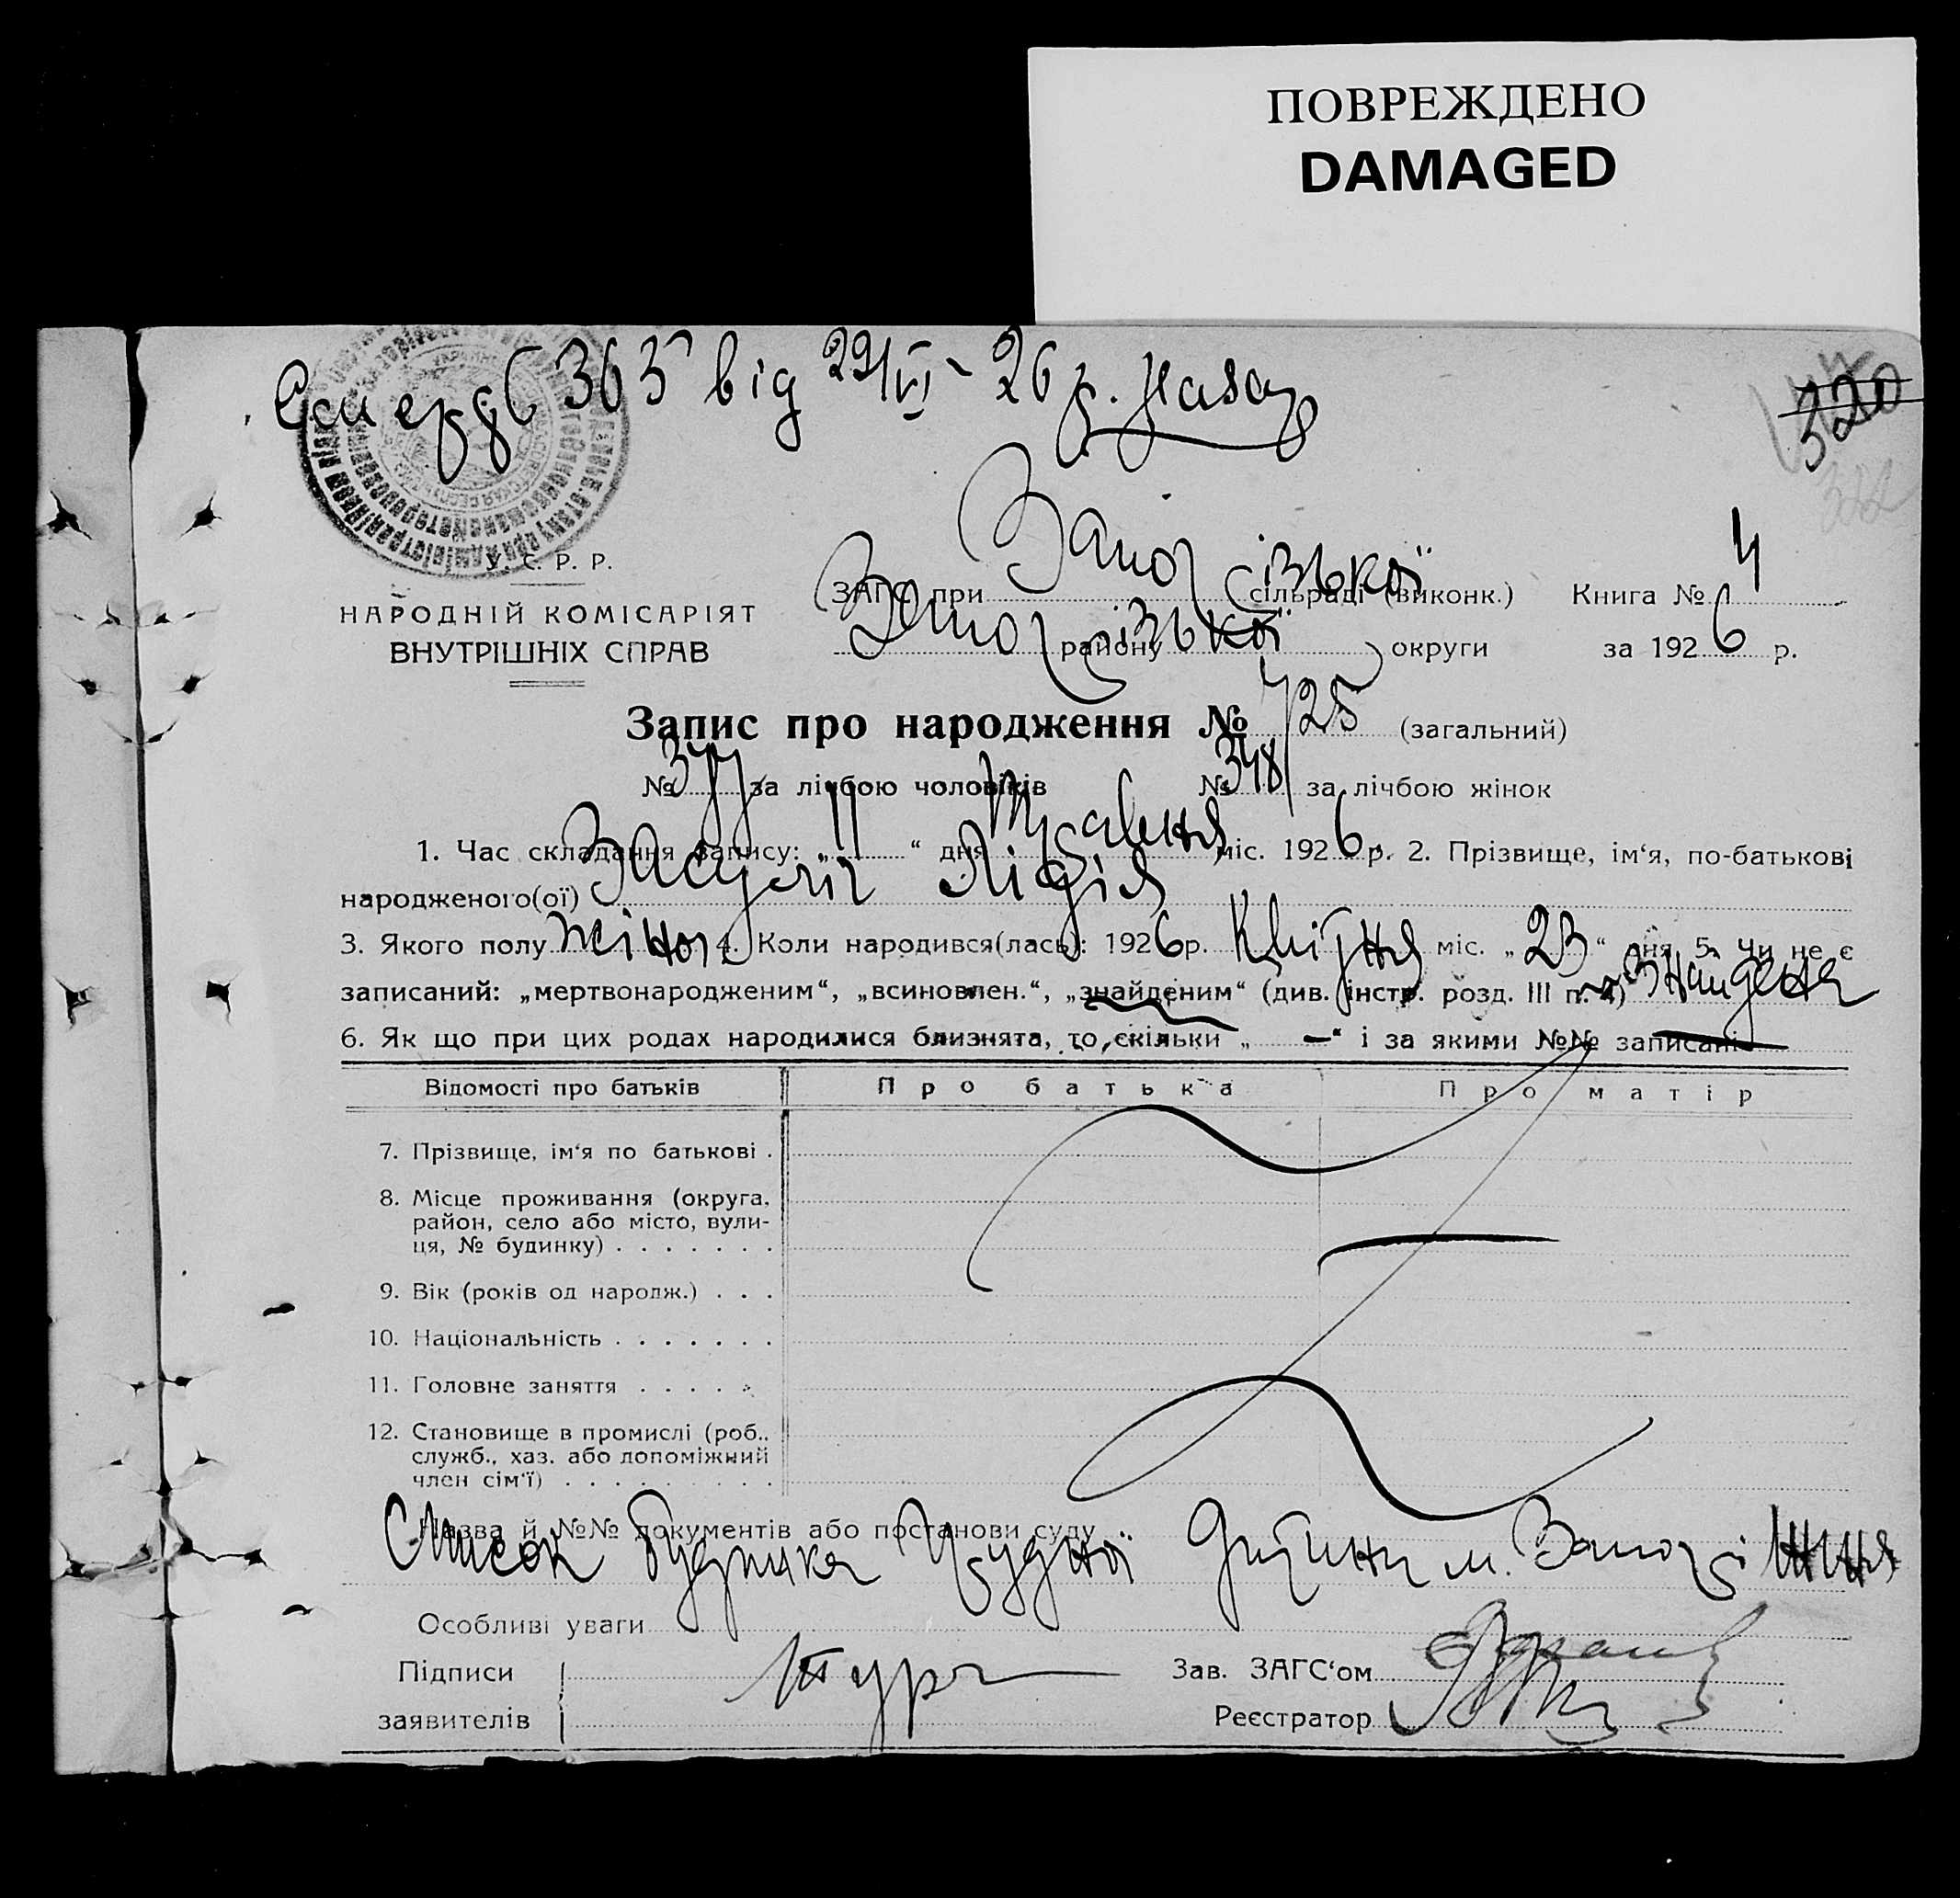 ПОВРЕЖДЕНО
DAMAGED
365 від 29/VI - 26 р.
320
У. С. Р. Р.
НАРОДНІЙ КОМІСАРІЯТ
ВНУТРІШНІХ СПРАВ
ЗАГС при Запорізької сільраді (виконк.) Книга № 4
Запорізької району округи за 1926 р.
Запис про народження № 725 (загальний)
№ 377 за лічбою чоловіків № 348 за лічбою жінок
1. Час складання запису: „11“ дня Травня міс. 1926 р. 2. Прізвище, ім‘я, по-батькові
народженого(ої) Засуліч Лідія
3. Якого полу жіноч. 4. Коли народився(лась): 1926 р. Квітня міс. „23“ дня 5. Чи не є
записаний: „мертвонародженим“, „всиновлен.“, „знайденим“ (див. інстр. розд. III п. 4) Знайдена
6. Як що при цих родах народилися близнята, то скільки „ — “ і за якими №№ записані —
Відомості про батьків Про батька Про матір
7. Прізвище, ім‘я по батькові .
8. Місце проживання (округа,
район, село або місто, вули-
ця, № будинку) . . . . . . .
9. Вік (років од народж.) . . .
10. Національність . . . . . . .
11. Головне заняття . . . . .
12. Становище в промислі (роб.,
служб., хаз. або допоміжний
член сім‘ї) . . . . . . . . .
Назва й №№ документів або постанови суду
Список будинка Грудної Дитини м. Запоріжжя
Особливі уваги
Підписи Зав. ЗАГС‘ом
заявителів Реєстратор